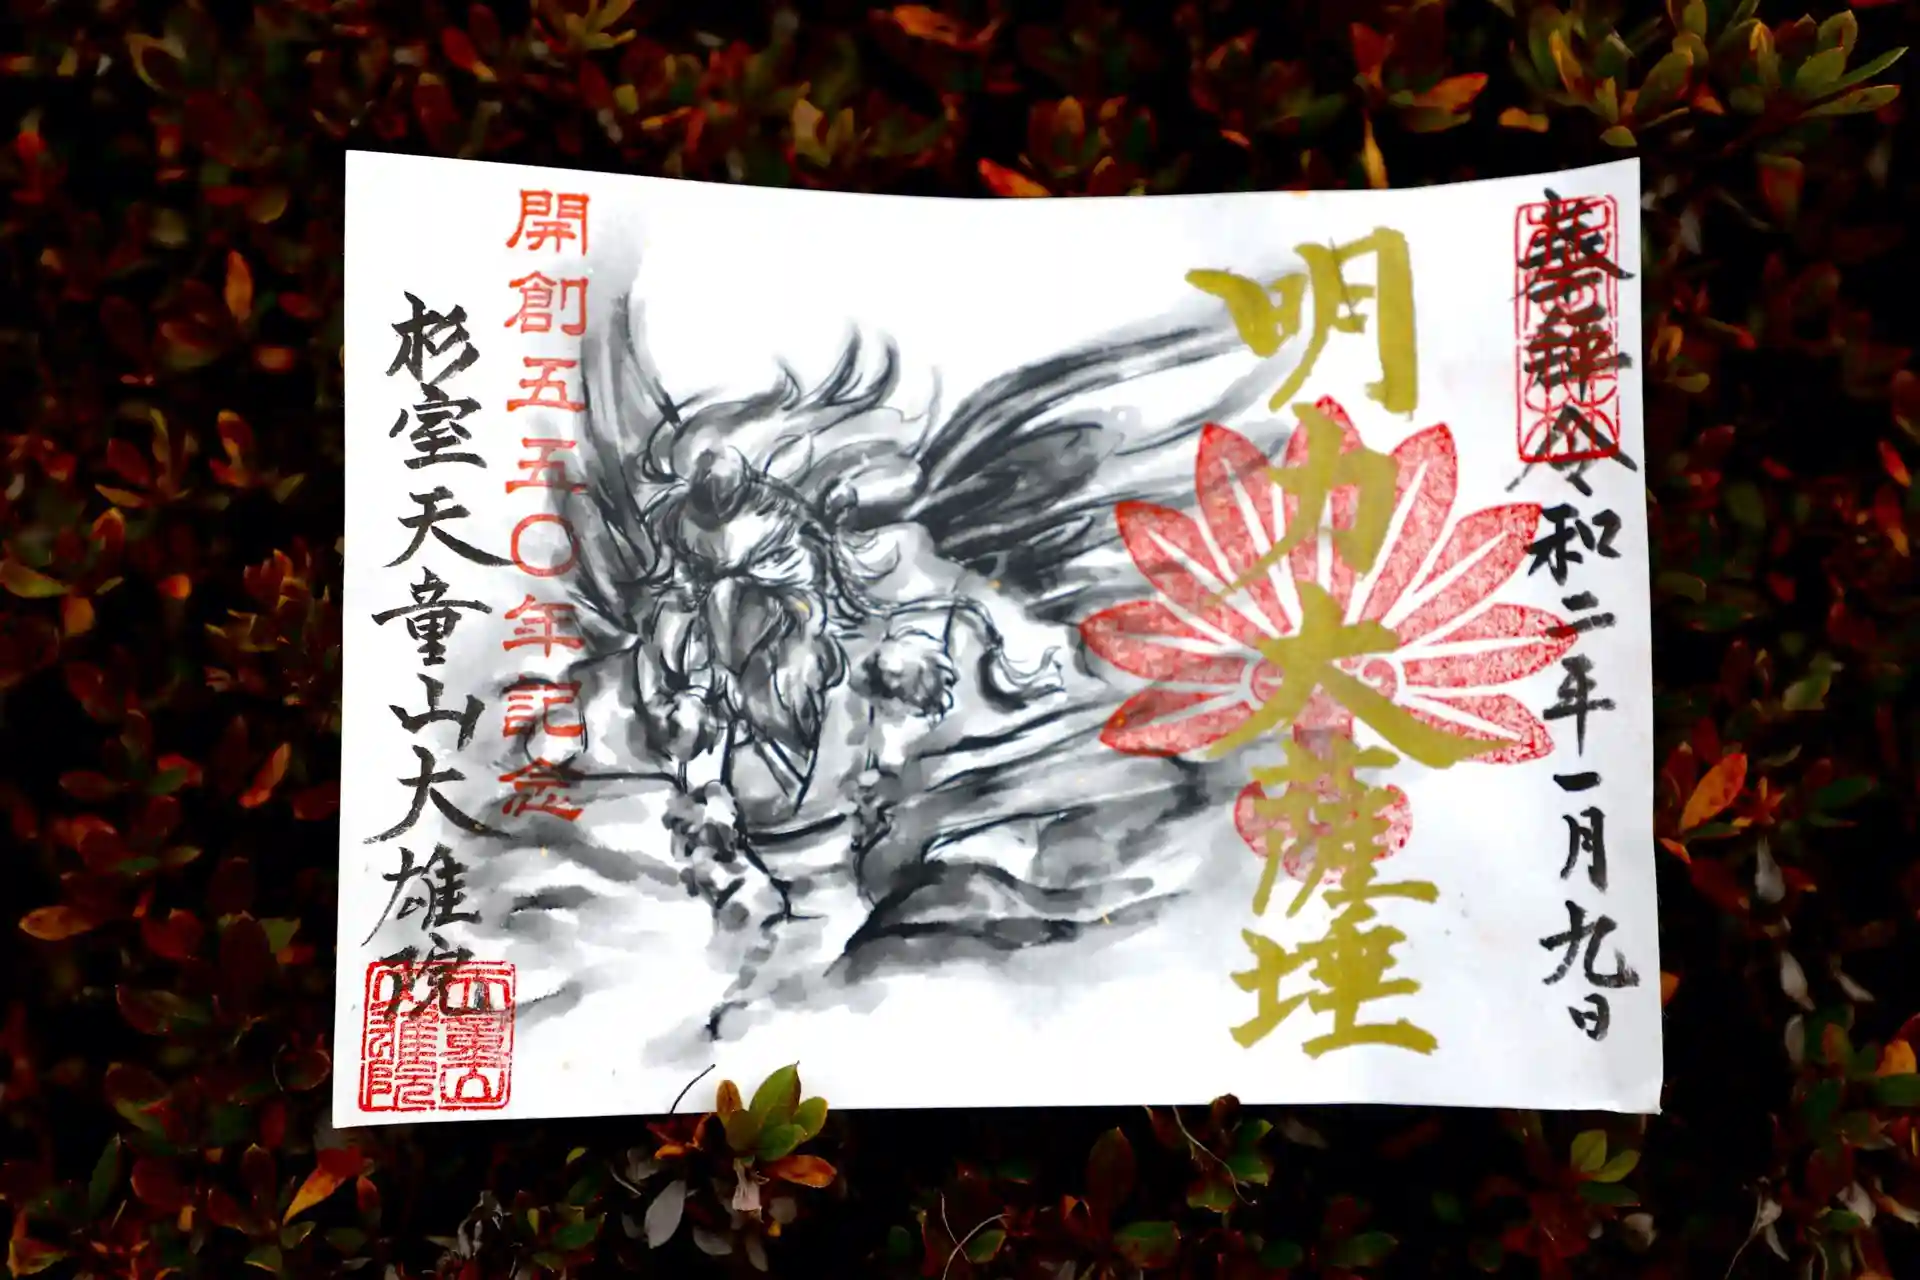 奉拝令和二年一月九日
明力大薩埵
開創五五〇年記念
杉室天童山大雄院